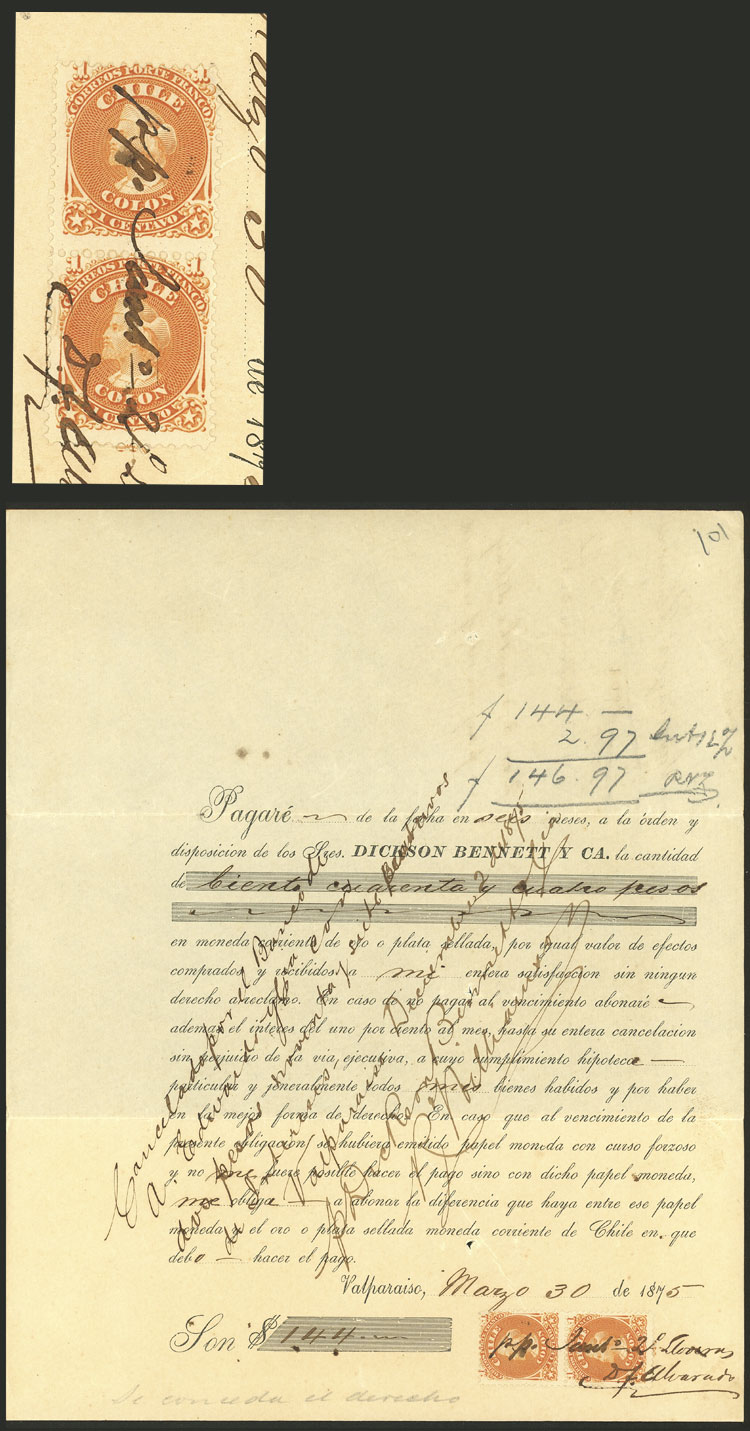 1 CORREOS PORTE FRANCO 1
CHILE
COLON
1 CENTAVO
1 CORREOS PORTE FRANCO 1
CHILE
COLON
1 CENTAVO
de 187
101
144 —
2.97
146.97
Pagaré de la fecha en seis meses, a la órden y
disposicion de los Sres. DICKSON BENNETT Y CA. la cantidad
de Ciento cuarenta y cuatro pesos
en moneda corriente de oro o plata sellada, por igual valor de efectos
comprados y recibidos a mi entera satisfaccion sin ningun
derecho a reclamo. En caso de no pagar al vencimiento abonaré
ademas el interes del uno por ciento al mes, hasta su entera cancelacion
sin perjuicio de la via, ejecutiva, a cuyo cumplimiento hipoteca
particular y jeneralmente todos mis bienes habidos y por haber
en la mejor forma de derecho. En caso que al vencimiento de la
presente obligacion se hubiera emitido papel moneda con curso forzoso
y no me fuere posible hacer el pago sino con dicho papel moneda,
me obliga a abonar la diferencia que haya entre ese papel
moneda y el oro o plata sellada moneda corriente de Chile en que
debo hacer el pago.
Valparaiso, Marzo 30 de 1875
Son $ 144
Cancelada por el Banco de
A. Edwards y Ca con
dos pesos noventa y siete centavos
de intereses
Valparaiso Diciembre 2 de 1875
pp. Dickson Bennett
pp. Santo
D. J. Alvarado
Se conceda el derecho